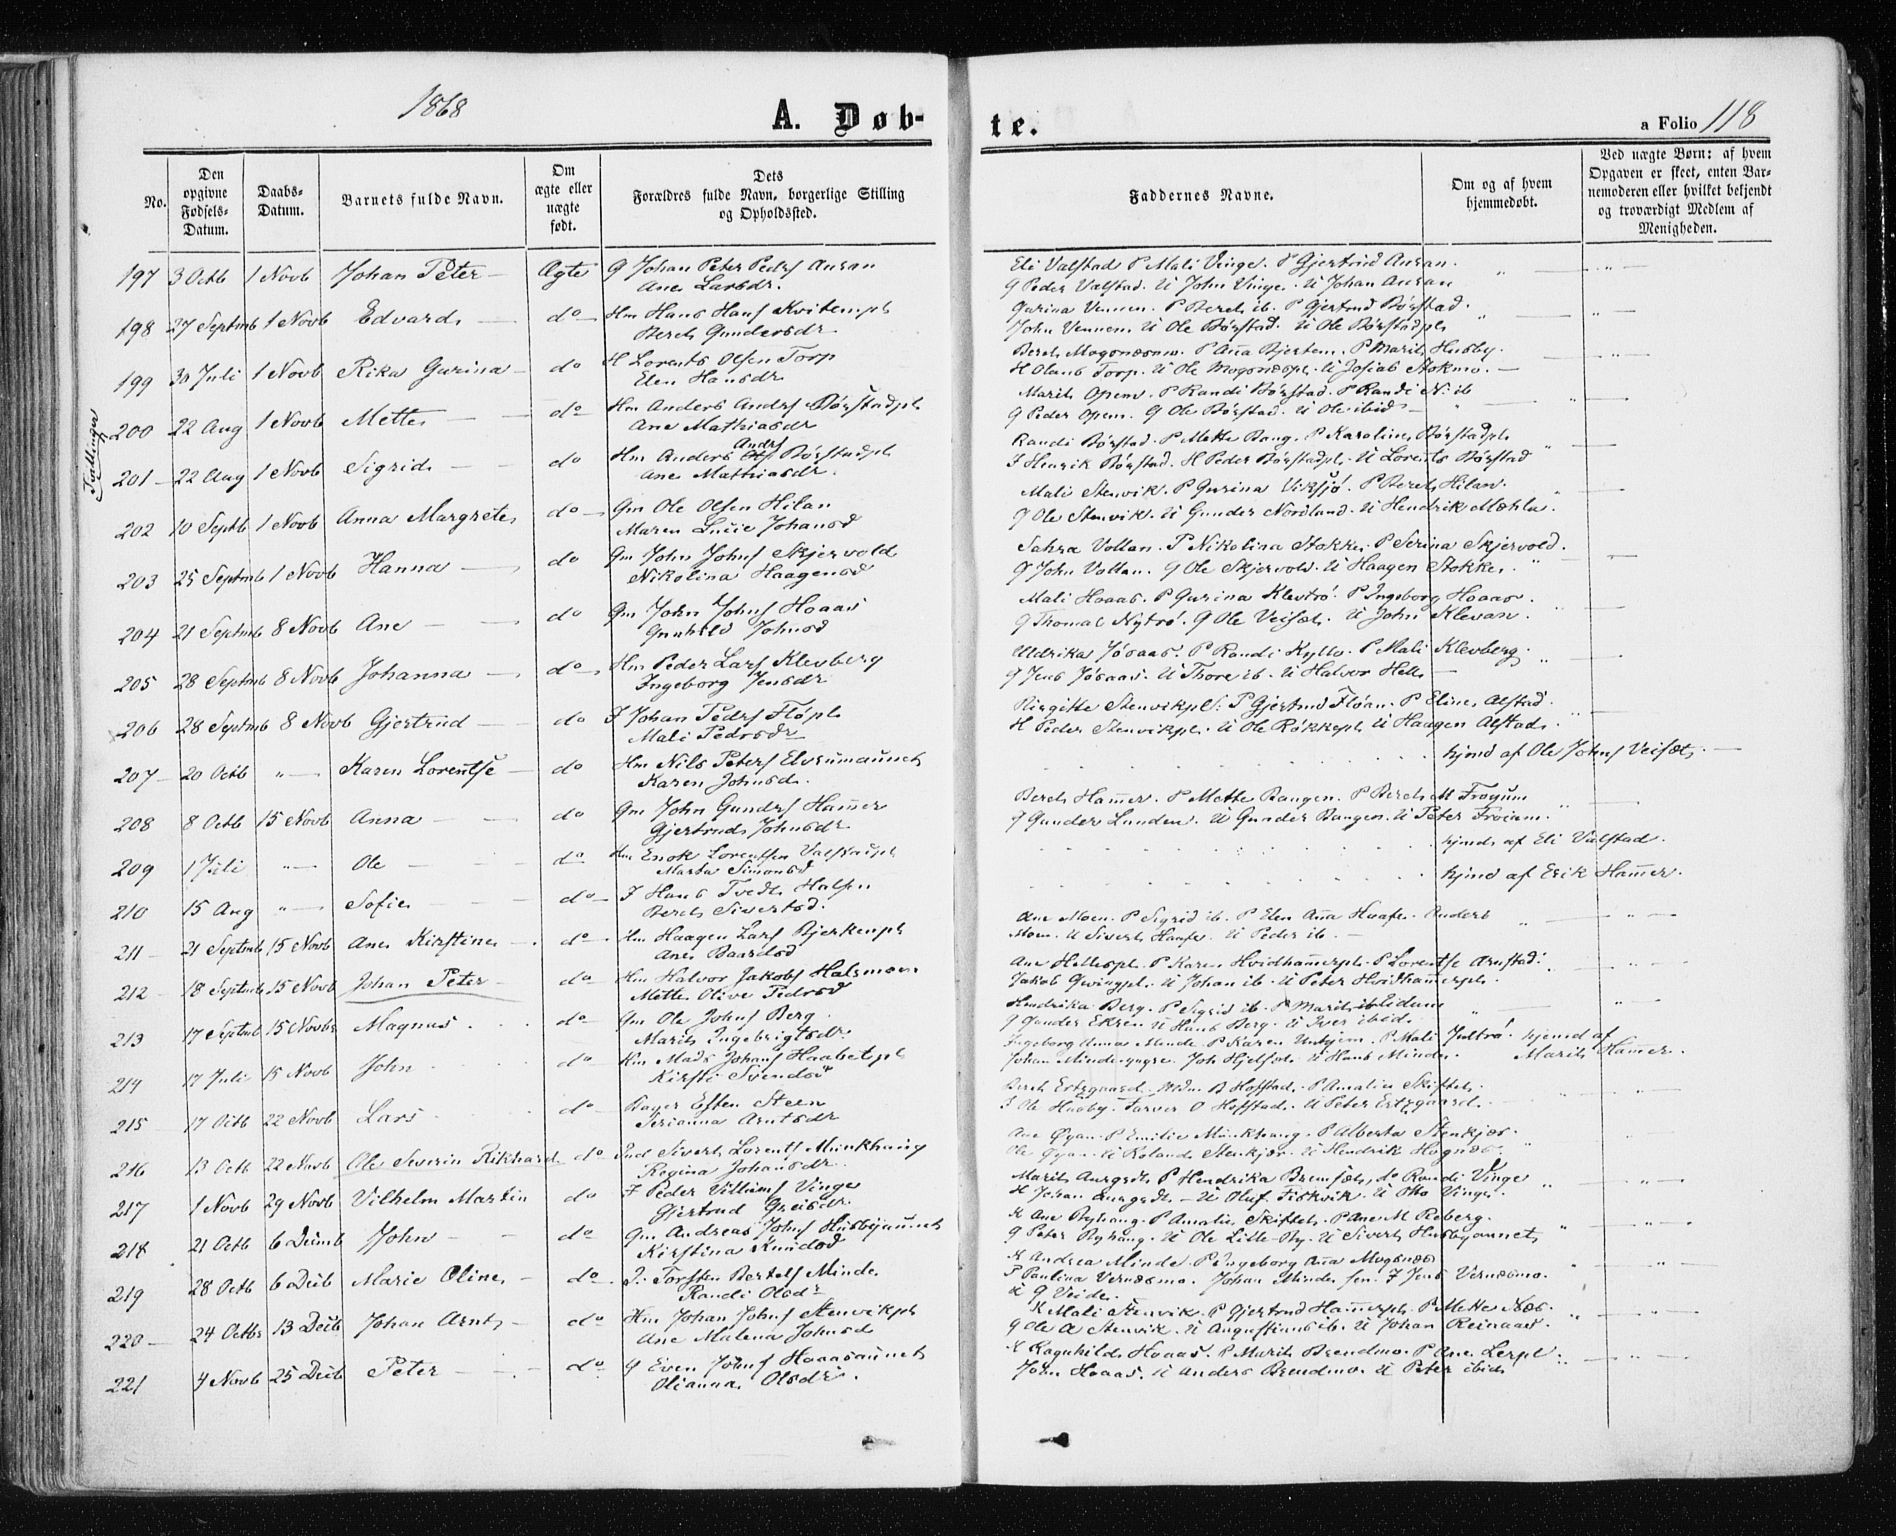 1868
A. Døb-
te.
a Folio 118
No.
Den opgivne Fødsels-Datum.
Daabs-Datum.
Barnets fulde Navn.
Om ægte eller uægte født.
Dets Forældres fulde Navn, borgerlige Stilling og Opholdssted.
Faddernes Navne.
Om og af hvem hjemmedøbt.
Ved uægte Børn: af hvem Opgaven er skeet, enten Barnemoderen eller hvilket bekjendt og troværdigt Medlem af Menigheden.
197 3 Octb 1 Novb Johan Peter Ægte G Johan Peter Peds Auran
Ane Larsdr.
Eli Valstad P Mali Vinge. P Gjertrud Auran.
G Peder Valstad. U John Vinge. U Johan Auran
198 27 Septmb 1 Novb Edvard do Hm Hans Hans Kvitempl
Bereth Gundersdr
Gurina Vennen. P Bereth ib. P Gjertrud Børstad.
John Vennen. U Ole Børstad. U Ole Børstadpl
199 30 Juli 1 Novb Rika Gurina do H Lorents Olsen Torp
Elen Hansdr
Bereth Mogsnæsmo. P Anna Bjertem. P Marith Husby.
H Olaus Torp. U Ole Mogsnæspl. U Josias Stokmo.
200 22 Aug 1 Novb Mette do Hm Anders Andrs Børstadpl
Ane Mathiasdr
Marith Opem. P Randi Børstad. P Randi N. ib
G Peder Opem. G Ole Børstad. U Ole ibid
Tvillinger
201 22 Aug 1 Novb Sigrid do Hm Anders Andrs Børstadpl
Ane Mathiasdr.
Randi Børstad. P Mette Bang. P Karoline Børstadpl
I Henrik Børstad. H Peder Børstadpl. U Lorents Børstad
202 10 Septb 1 Novb Anna Margrete do Gm Ole Olsen Hilan
Maren Lucie Johansd
Mali Stenvik. P Gurina Viksjø. P Bereth Hilan.
G Ole Stenvik. U Gunder Nordland. U Hendrik Mæhla.
203 25 Septmb 1 Novb Hanna do Gm John Johns Skjervold
Nikolina Haagensd
Sahra Vollan. P Nikolina Stokke. P Serina Skjervold.
G John Vollan. G Ole Skjervold. U Haagen Stokke.
204 21 Septmb 8 Novb Ane do Gm John Johns Hoaas
Gunhild Johnsd
Mali Hoaas. P Gurina Klevrø. P Ingeborg Hoaas.
G Thomas Nytrø. G Ole Veisæt. U John Klevan.
205 28 Septmb 8 Novb Johanna do Hm Peder Lars Klevberg
Ingeborg Jensdr
Uldrika Jøsaas. P Randi Kyllo. P Mali Klevberg.
G Jens Jøsaas. U Thore ib. U Halvor Hell
206 28 Septmb 8 Novb Gjertrud do I Johan Peders Fløpl
Mali Pedersdr
Birgitte Stenvikpl. P Gjertrud Fløan. P Eline Alstad
H Peder Stenvikpl. U Ole Røkkepl. U Haagen Alstad.
207 20 Octb " Karen Lorentse do Hm Nils Peters Elvrumaunet
Karen Johnsd.
hjmd af Ole Johns Veisæt.
208 8 Octb 15 Novb Anna do Gm John Gundrs Hammer
Gjertrud Johnsdr
Bereth Hammer. P Mette Bangen. P Bereth M Frøyum
G Gunder Lunden. U Gunder Bangen. U Peter Frøium.
209 1 Juli " Ole do Hm Enok Lorentsen Valstadpl
Marta Simonsd
hjmd af Eli Valstad.
210 15 Aug " Sofie do I Hans Tvedt Halsen
Bereth Sivertsd.
hjmd af Erik Hammer.
211 21 Septmb 15 Novb Ane Kirstine do Hm Haagen Lars Bjerkenpl
Ane Baardsd
Ane Moen. P Sigrid ib. P Elen Anna Haafe. Anders
Moen. U Sivert Haafe. U Peder ib.
212 18 Septmb 15 Novb Johan Peter do Hm Halvor Jakobs Halsmoen
Mette Olive Pedersd
Ane Hellespl. P Karen Hvidhammerpl. P Lorentse Arnstad.
Jakob Qvingpl. U Johan ib. U Peter Hvidhammerpl.
213 17 Septmb 15 Novbr Magnus do Gm Ole Johns Berg
Marith Ingebrigtsdr
Hendrika Berg. P Sigrid ib. P Marith Eidum
G Gunder Ekren. U Hans Berg. U Iver ibid.
214 17 Juli 15 Novb John do Hm Mads Johans Haabetpl
Kirsti Svendsd
Ingeborg Minde. P Karen Unhjem. P Mali Jultrø.
Johan Minde yngre. U Hans Minde.
hjemd af
Marith Hammer.
215 17 Octb 22 Novb Lars do Bager Esten Steen
Serianna Arntsdr
Bereth Ertzgaard. B Hoffstad. P Amalie Skiftet.
I Ole Husby. Farver O Hoffstad. U Peter Ertzgaard.
216 13 Octb 22 Novb Ole Severin Rikhard do Ind Sivert Lorents Munkhaug
Regina Johansdr.
Ane Øyan. P Emilie Munkhaug. P Alberta Stenkjær.
Ole Øyan. U Roland Stenkjær. U Hendrik Høgnæs.
217 1 Novb 29 Novb Vilhelm Martin do I Peder Villiums Vinge
Gjertrud Greisdr
Marith Aurgedt. P Hendrika Bremset. do Randi Vinge
H Johan Aurgedt. U Oluf Fiskvik. U Otto Vinge.
218 21 Octb 6 Decmb John do Gm Andreas Johns Husbyaunet
Kirstina Knudsd
K Ane Ryhaug. P Amalie Skiftet. P Ane M Reberg.
G Peter Ryhaug. U Ole Lille-By. U Sivert Husbyaunet
219 28 Octb 6 Decb Marie Oline do I. Torsten Bertels Minde
Randi Olsdr
K Andrea Minde P Ingeborg Anna Mogsnæs
P Paulina Vernæsmo. Johan Minde sen. I Jens Vernæsmo.
U G Veide.
220 24 Octbr 13 Decb Johan Arnt do Hm Johan Johns Stenvikpl
Ane Malena Johnsd
K Mali Stenvik. P Gjertrud Hammerpl. P Mette Næs.
G Ole A Stenvik. U Augustinus ib. U Johan Reinaas.
221 4 Novb 25 Decb Peter do G Even Johns Hoaasaunet
Olianna Olsdr.
K Ragnhild Hoaas. P Marith Brendmo. P Ane Lerpl.
John Hoaas. U Anders Brendmo. U Peter ibid